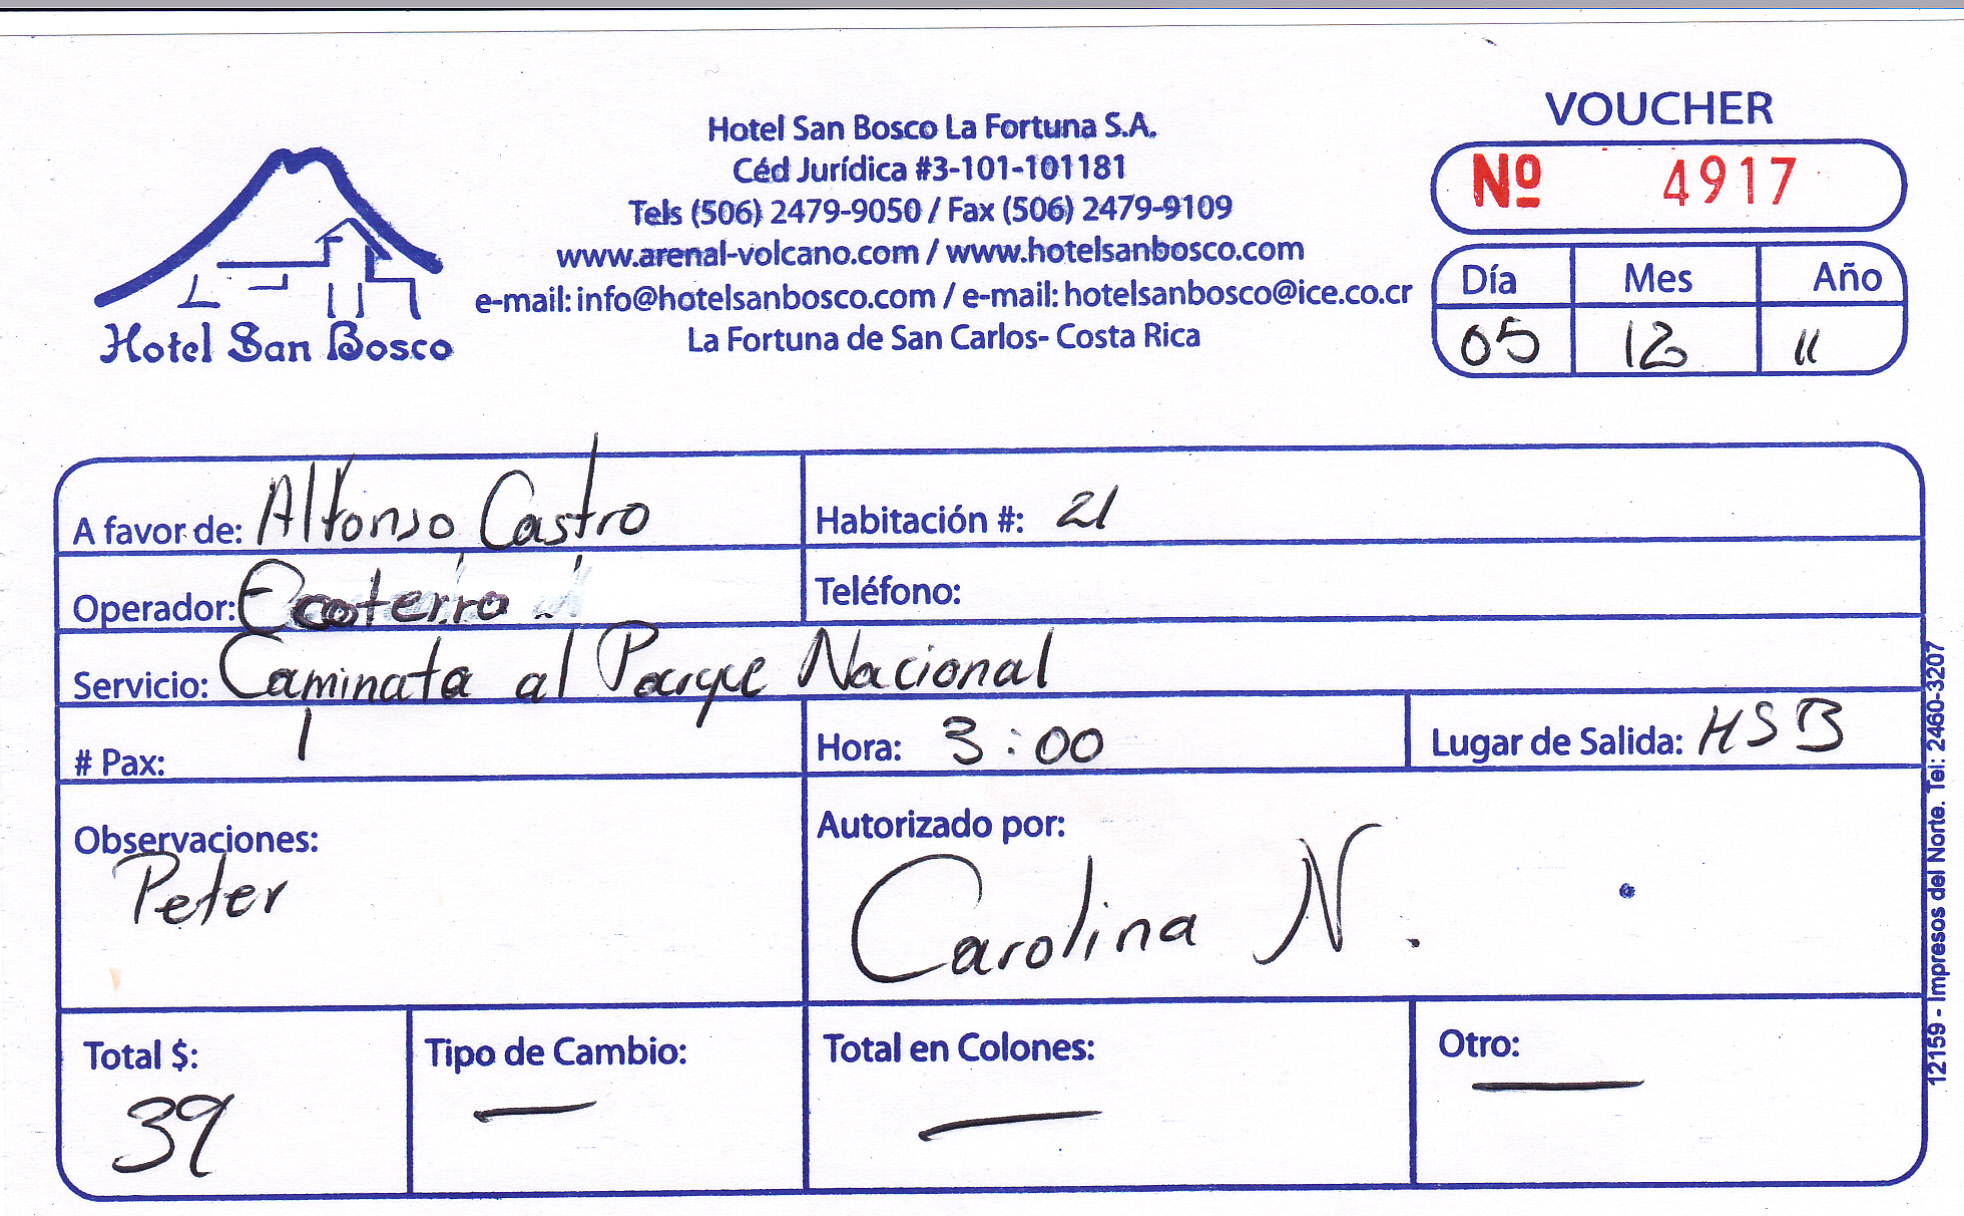 VOUCHER
Hotel San Bosco La Fortuna S.A.
Céd Jurídica #3-101-101181
Tels (506) 2479-9050 / Fax (506) 2479-9109
www.arenal-volcano.com / www.hotelsanbosco.com
e-mail: info@hotelsanbosco.com / e-mail: hotelsanbosco@ice.co.cr
La Fortuna de San Carlos- Costa Rica
Hotel San Bosco
Nº 4917
Día Mes Año
05 12 11
A favor de: Alfonso Castro
Habitación #: 21
Operador: Ecoterra
Teléfono:
Servicio: Caminata al Parque Nacional
# Pax: 1
Hora: 3:00
Lugar de Salida: HSB
Observaciones:
Peter
Autorizado por:
Carolina N.
Total $:
39
Tipo de Cambio:
—
Total en Colones:
—
Otro:
—
12159 - Impresos del Norte. Tel: 2460-3207